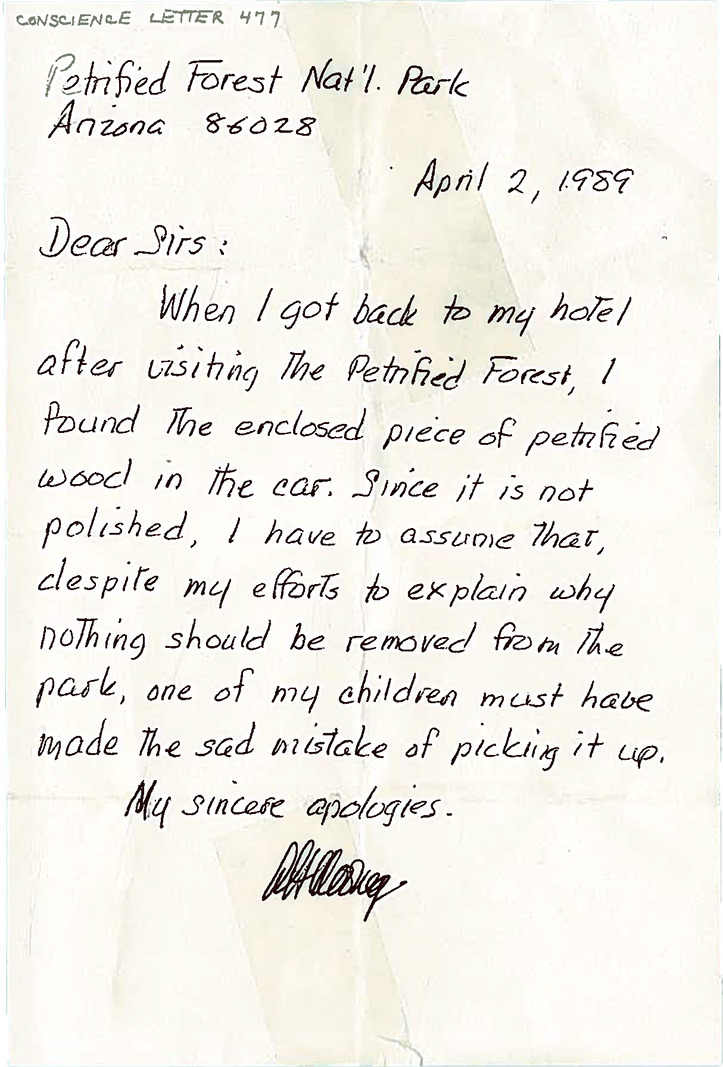 CONSCIENCE LETTER 477
Petrified Forest Nat'l. Park
Arizona 86028
April 2, 1989
Dear Sirs:
When I got back to my hotel
after visiting the Petrified Forest, I
found the enclosed piece of petrified
wood in the car. Since it is not
polished, I have to assume that,
despite my efforts to explain why
nothing should be removed from the
park, one of my children must have
made the sad mistake of picking it up.
My sincere apologies.